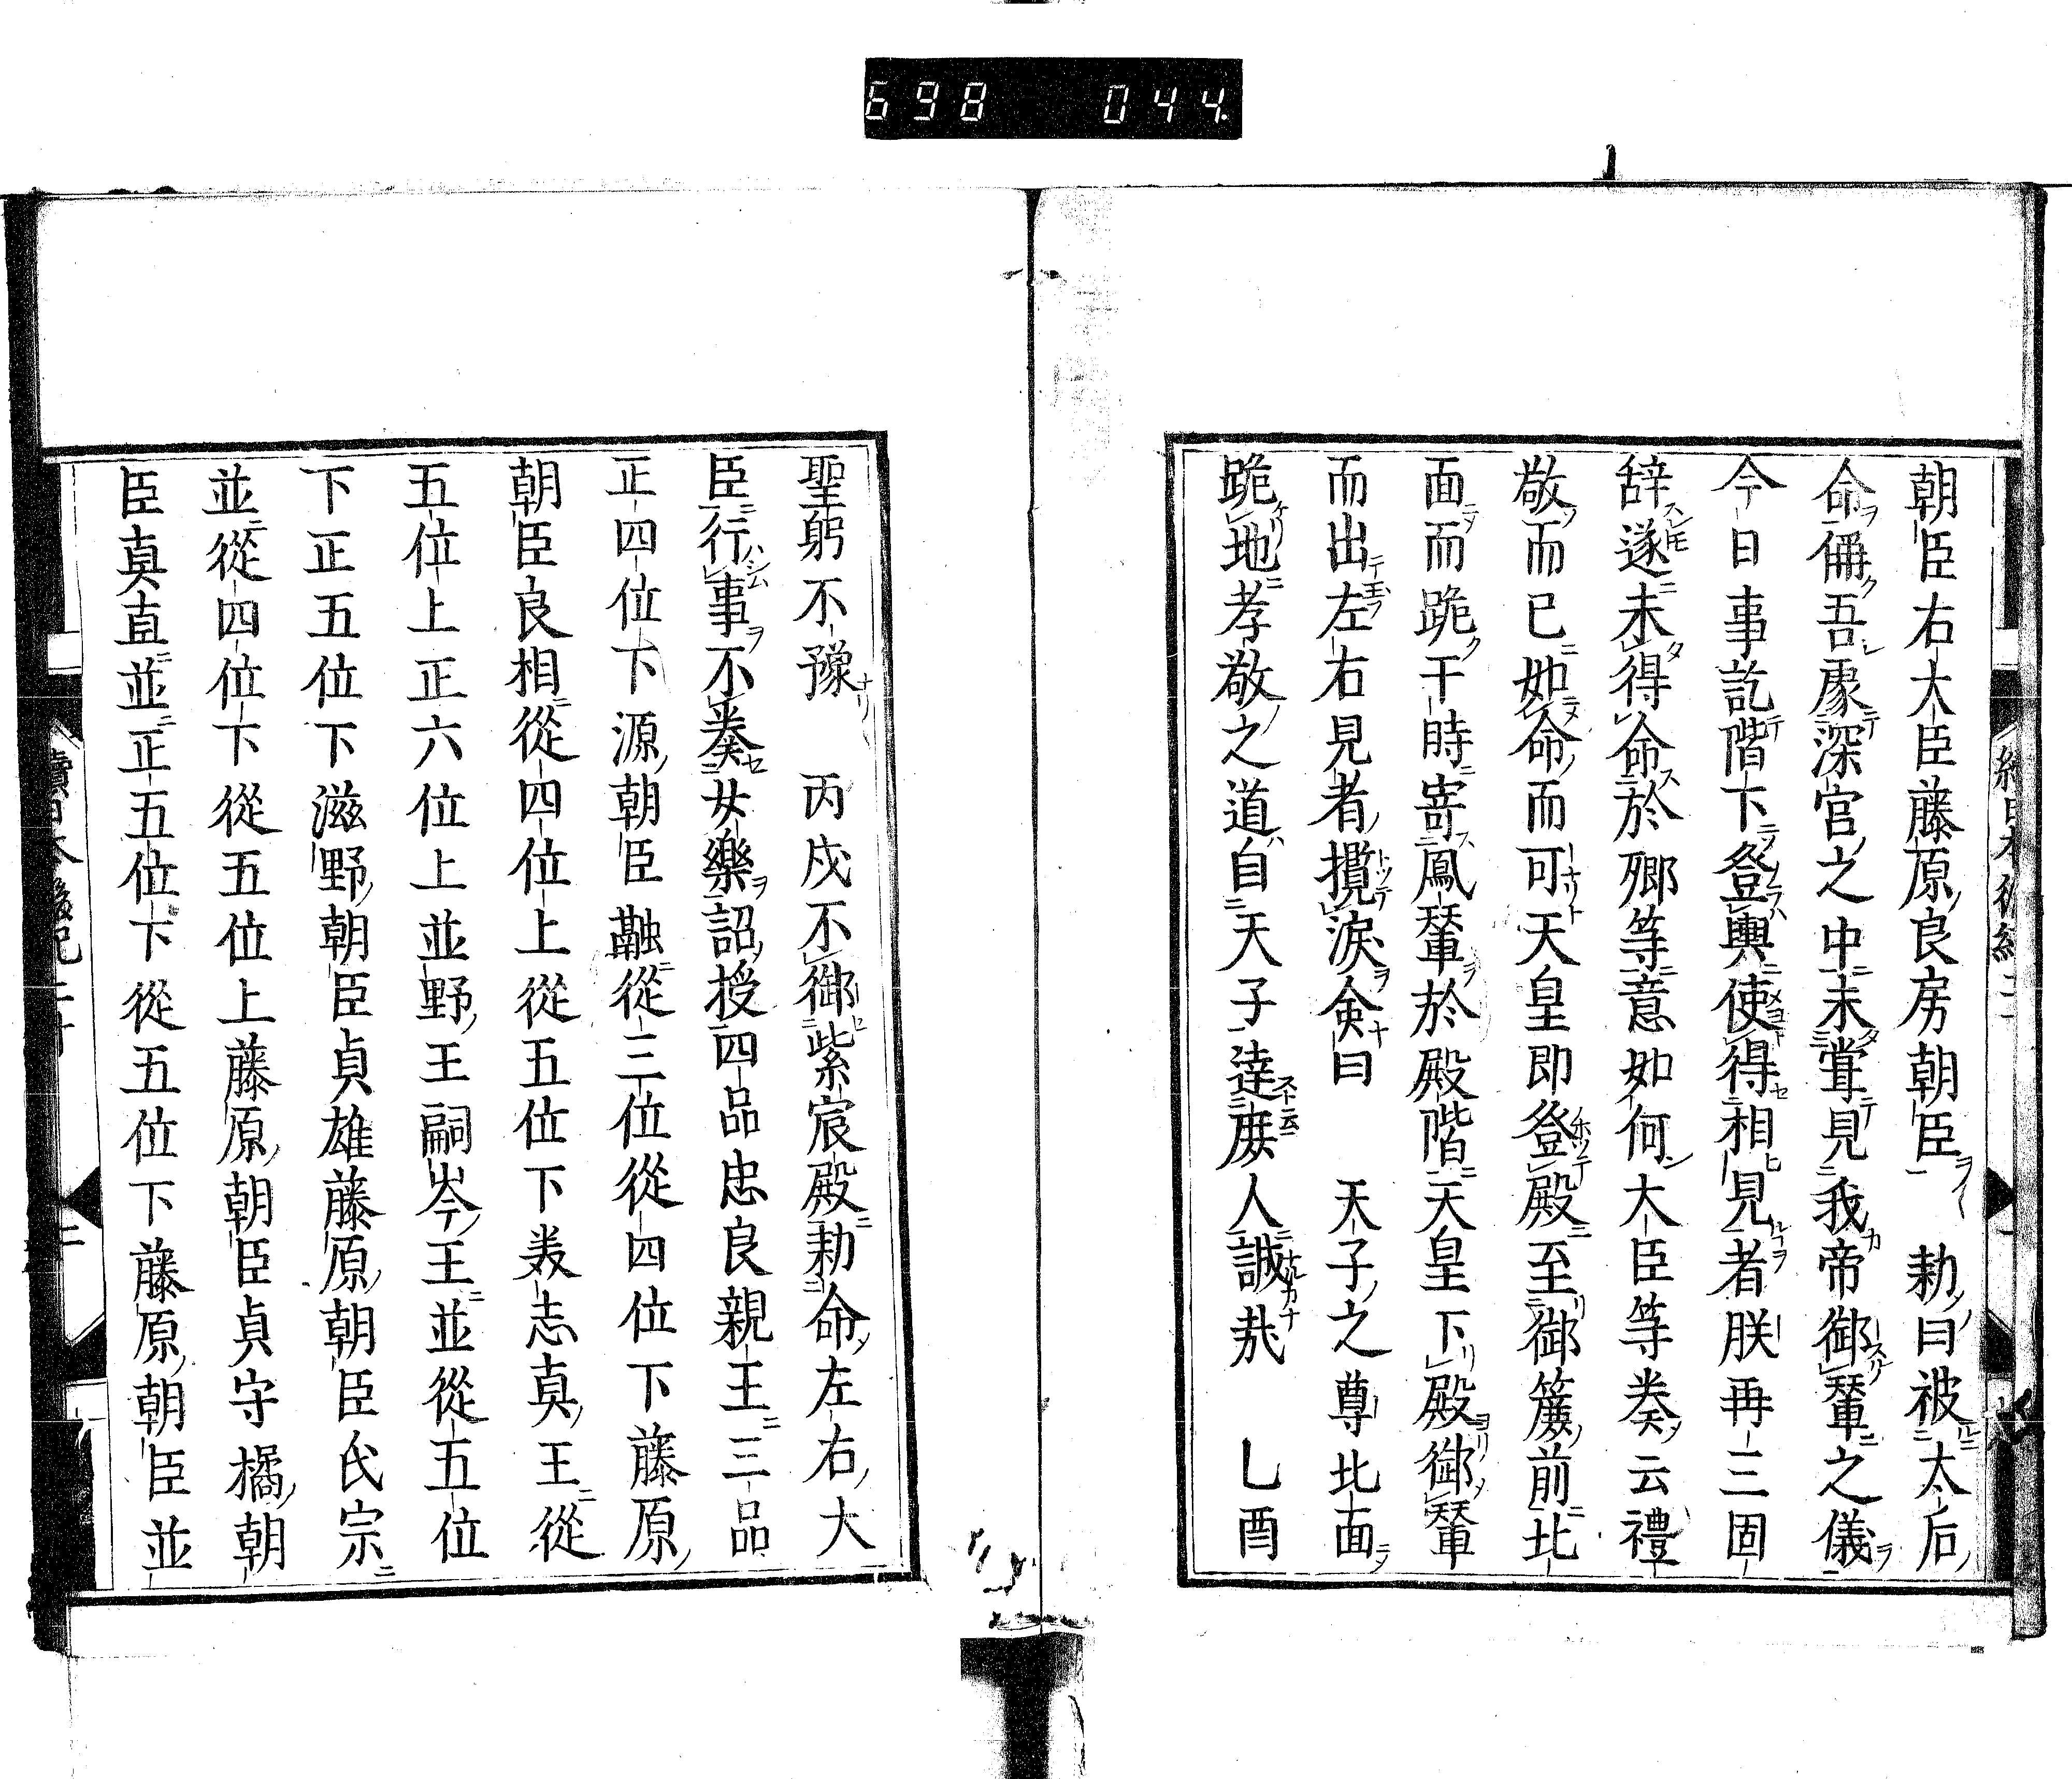 698 044.
朝臣右大臣藤原良房朝臣 勅曰被太后
命偁吾處深宮之中未甞見我帝御輦之儀
今日事訖階下登輿使得相見者朕再三固
辞遂未得命於卿等意如何大臣等奏云禮
敬而已如命而可天皇即登殿至御簾前北
面而跪于時寄鳳輦於殿階天皇下殿御輦
而出左右見者攬涙僉曰 天子之尊北面
跪地孝敬之道自天子達庶人誠哉 乙酉
聖躬不豫 丙戌不御紫宸殿勅命左右大
臣行事不奏女樂詔授四品忠良親王三品
正四位下源朝臣融從三位從四位下藤原
朝臣良相從四位上從五位下美志真王從
五位上正六位上並野王嗣岑王並從五位
下正五位下滋野朝臣貞雄藤原朝臣氏宗
並從四位下從五位上藤原朝臣貞守橘朝
臣真直並正五位下從五位下藤原朝臣並
續日本後紀二十
二